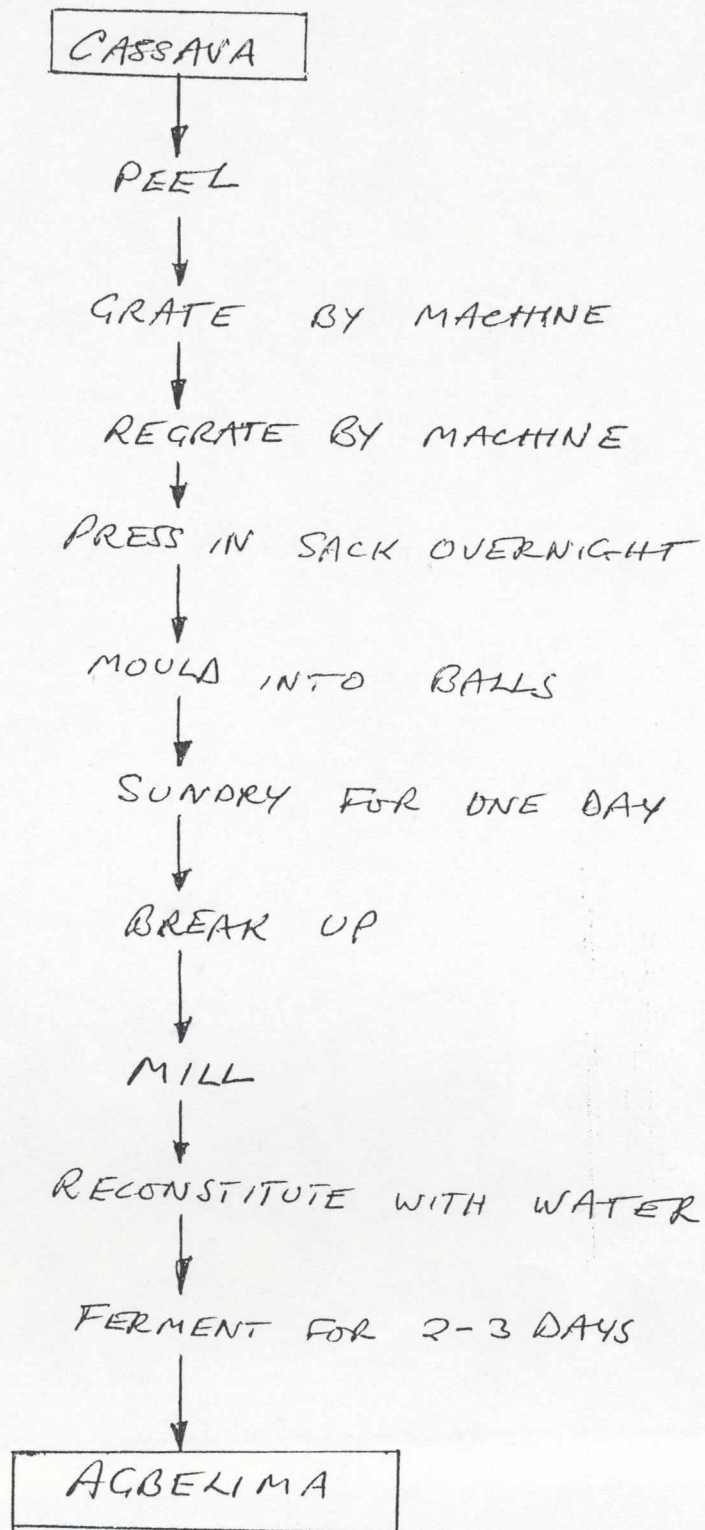 CASSAVA
PEEL
GRATE BY MACHINE
REGRATE BY MACHINE
PRESS IN SACK OVERNIGHT
MOULD INTO BALLS
SUNDRY FOR ONE DAY
BREAK UP
MILL
RECONSTITUTE WITH WATER
FERMENT FOR 2-3 DAYS
AGBELIMA